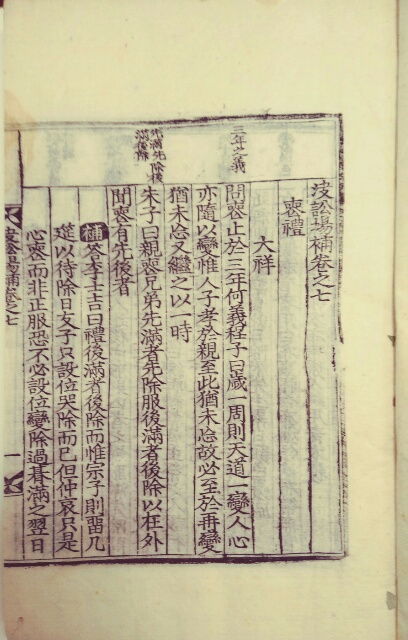 三年之義
先滿先除後
滿後除
決訟場補卷之七
喪禮
大祥
問喪止於三年何義程子曰歲一周則天道一變人心
亦隨以變惟人子孝於親至此猶未忘故必至於再變
猶未忘又繼之以一時
朱子曰親喪兄弟先滿者先除服後滿者後除以在外
聞喪有先後者
補答李士吉曰禮後滿者後除而惟宗子則留几
筵以待除日女子只設位哭除而已但仲哀只是
心喪而非正服恐不必設位變除過朞滿之翌日
決訟場補卷之七
一